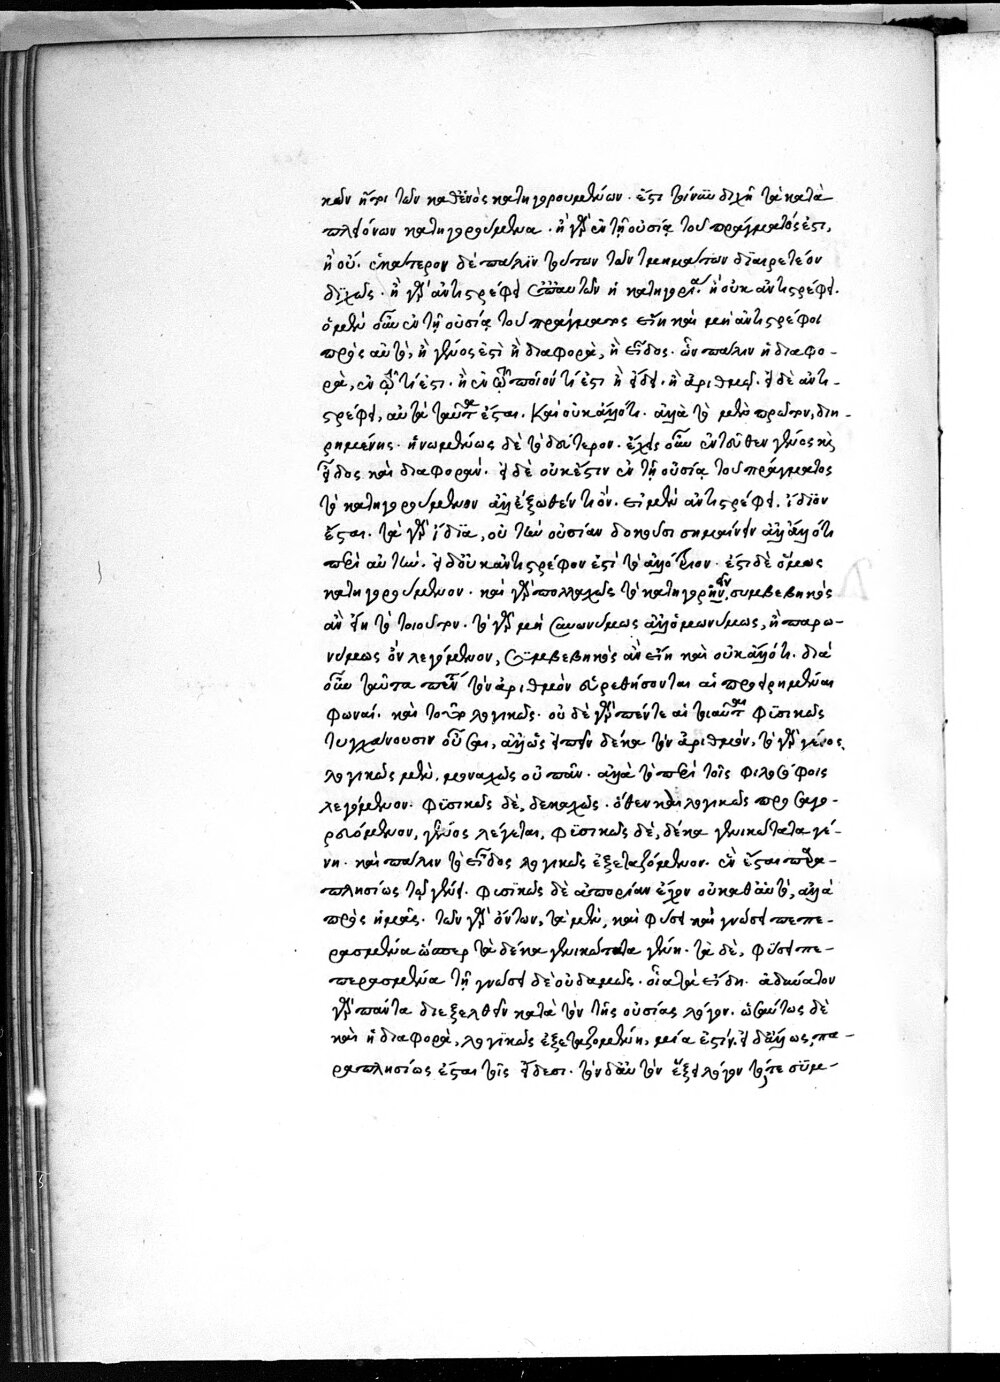 κῶν ἤτοι τῶν καθ' ἑνὸς κατηγορουμένων. ἔστι τοίνυν διχῆ τὰ κατὰ
πλειόνων κατηγορούμενα. ἢ γὰρ ἐν τῇ οὐσίᾳ τοῦ πράγματός ἐστι,
ἢ οὔ. ἑκάτερον δὲ πάλιν τούτων τῶν τμημάτων διαιρετέον
διχῶς. ἢ γὰρ ἀντιστρέφει ἐπ' αὐτῶν ἡ κατηγορία ἢ οὐκ ἀντιστρέφει.
ὃ μὲν οὖν ἐν τῇ οὐσίᾳ τοῦ πράγματος εἴη καὶ μὴ ἀντιστρέφοι
πρὸς αὐτὸ, ἢ γένος ἐστὶ ἢ διαφορὰ, ἢ εἶδος. ὧν πάλιν ἡ διαφο-
ρὰ, ἐν τί ἐστι. ἢ ἐν ποῖόν τί ἐστι ἢ εἴδει. ἢ ἀριθμῷ. εἰ δὲ ἀντι-
στρέφει, αὐτὰ ταῦτα ἔσται. καὶ οὐκ ἄλλό τι. ἀλλὰ τὸ μὲν πρῶτον, διῃ-
ρημένης. ἡνωμένως δὲ τὸ δεύτερον. ἔχεις οὖν ἐντεῦθεν γένος καὶ
εἶδος καὶ διαφοράν. εἰ δὲ οὐκ ἔστιν ἐν τῇ οὐσίᾳ τοῦ πράγματος
τὸ κατηγορούμενον ἀλλ' ἔξωθέν τι ὂν. εἰ μὲν ἀντιστρέφει. ἴδιον
ἔσται. τὰ γὰρ ἴδια, οὐ τὴν οὐσίαν δοκοῦσι σημαίνειν ἀλλ' ἄλλό τι
περὶ αὐτήν. εἰ δ' οὐκ ἀντιστρέφον ἐστὶ τὸ ἀλλότριον. ἔστι δὲ ὅμως
κατηγορούμενον. καὶ γὰρ πολλαχῶς τὸ κατηγορεῖν, συμβεβηκὸς
ἂν εἴη τὸ τοιοῦτον. τὸ γὰρ μὴ συνωνύμως ἀλλ' ὁμωνύμως, ἢ παρω-
νύμως ὂν λεγόμενον, συμβεβηκὸς ἂν εἴη καὶ οὐκ ἄλλό τι. διὰ
οὖν ταῦτα πέντε τὸν ἀριθμὸν εὑρεθήσονται αἱ προειρημέναι
φωναί. καὶ λογικῶς. οὐ δὲ γὰρ πέντε αἱ τοιαῦται φυσικῶς
τυγχάνουσιν οὖσαι, ἀλλ' ὡς εἰπεῖν δέκα τὸν ἀριθμόν, τὸ γὰρ γένος
λογικῶς μὲν, μοναχῶς οὐ πᾶν. ἀλλὰ τὸ περὶ τοῖς φιλοσόφοις
λεγόμενον. φυσικῶς δὲ, δεκαχῶς. ὅθεν καὶ λογικῶς προσαγο-
ρευόμενον, γένος λέγεται, φυσικῶς δὲ, δέκα γενικώτατα γέ-
νη. καὶ πάλιν τὸ εἶδος λογικῶς ἐξεταζόμενον. ἓν ἔσται παρα-
πλησίως τῷ γένει. φυσικῶς δὲ ἀπορίαν ἔχον οὐ καθ' αὑτὸ, ἀλλὰ
πρὸς ἡμᾶς. τῶν γὰρ ὄντων, τὰ μὲν, καὶ φύσει καὶ γνώσει πεπε-
ρασμένα ὥσπερ τὰ δέκα γενικώτατα γένη. τὰ δὲ, φύσει πε-
περασμένα τῇ γνώσει δὲ οὐδαμῶς. οἷα τὰ εἴδη. ἀδύνατον
γὰρ πάντα διεξελθεῖν κατὰ τὸν τῆς οὐσίας λόγον. ὡσαύτως δὲ
καὶ ἡ διαφορὰ, λογικῶς ἐξεταζομένη, μία ἐστίν. εἰ δ' ἄλλως, πα-
ραπλησίως ἔσται τοῖς εἴδεσι. τὸν δ' αὐτὸν ἕξει λόγον τό, τε συμ-